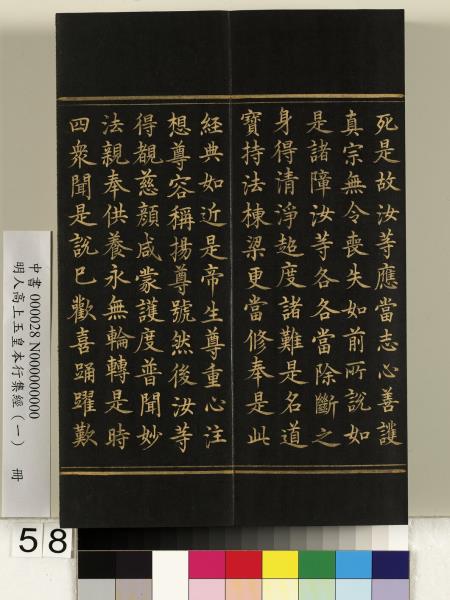 死是故汝等應當志心善護
真宗無令喪失如前所說如
是諸障汝等各各當除斷之
身得清淨超度諸難是名道
寶持法棟梁更當修奉是此
經典如近是帝生尊重心注
想尊容稱揚尊號然後汝等
得覩慈顏咸蒙護度普聞妙
法親奉供養永無輪轉是時
四眾聞是說已歡喜踊躍歎
中書000028 N000000000
明人高上玉皇本行集經(一) 冊
58